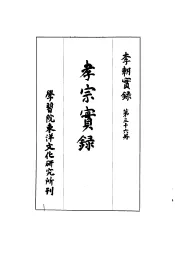 李朝實錄 第三十六冊
孝宗實錄
學習院東洋文化研究所刊